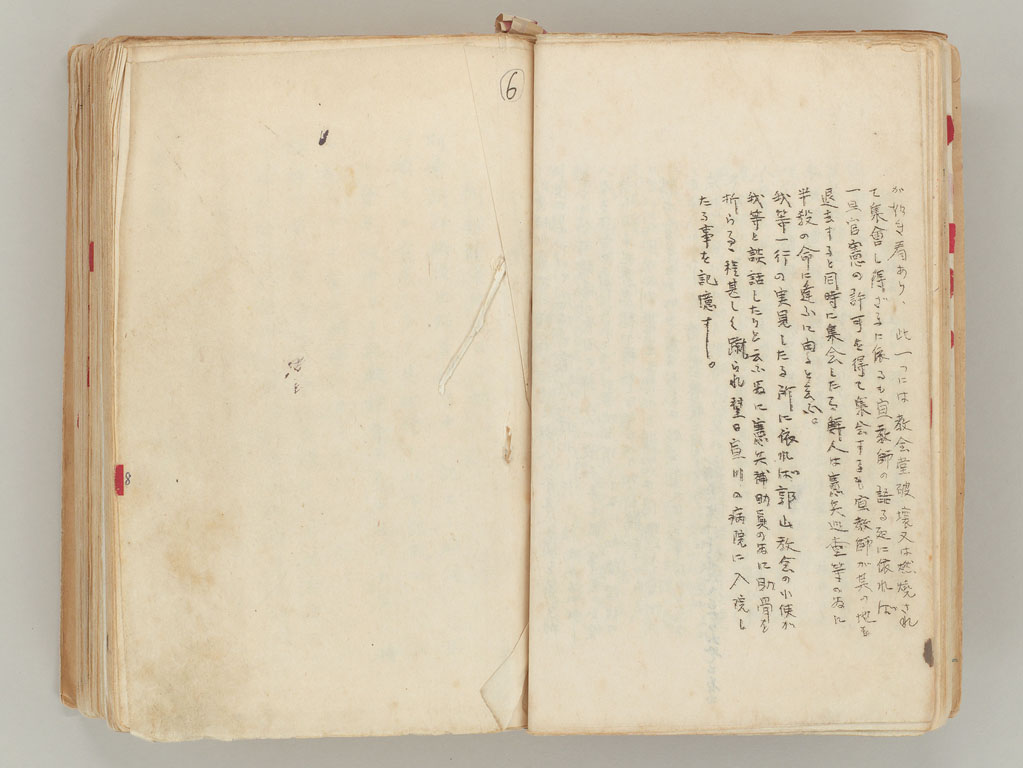 が如き有あり、此一つには教会堂破壊又は燃焼され
て集會し得ざるに依るも宣教師の語る処に依れば
一旦官憲の許可を得て集会するも宣教師が其の地を
退去すると同時に集会したる鮮人は憲兵巡査等の為に
半殺の命に逢ふに由ると云ふ。
我等一行の実見したる所に依れば郭山教会の小使が
我等と談話したりと云ふ為に憲兵補助員の為に助骨を
折らるゝ程甚しく蹴られ翌日宣川の病院に入院し
たる事を記憶す。
6
8